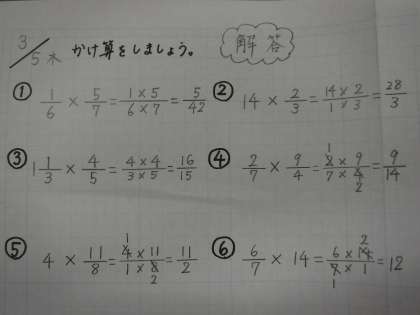 3/5 木 かけ算をしましょう。 解答
① 1/6 × 5/7 = 1×5/6×7 = 5/42 ② 14 × 2/3 = 14×2/1×3 = 28/3
③ 1 1/3 × 4/5 = 4×4/3×5 = 16/15 ④ 2/7 × 9/4 = 1 2×9/7×4 2 = 9/14
⑤ 4 × 11/8 = 1 4×11/1×8 2 = 11/2 ⑥ 6/7 × 14 = 6×14 2/7×1 1 = 12